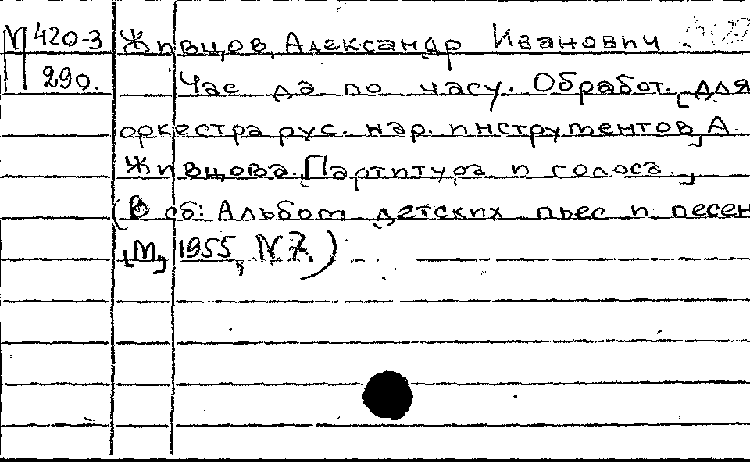 П 420-3 Живцов, Александр Иванович.
290. Час да по часу. Обработ. [для
оркестра рус. нар. инструментов] А.
Живцова. Партитура и голоса.
(В сб: Альбом детских пьес и песен
[М], 1955, N 7.)